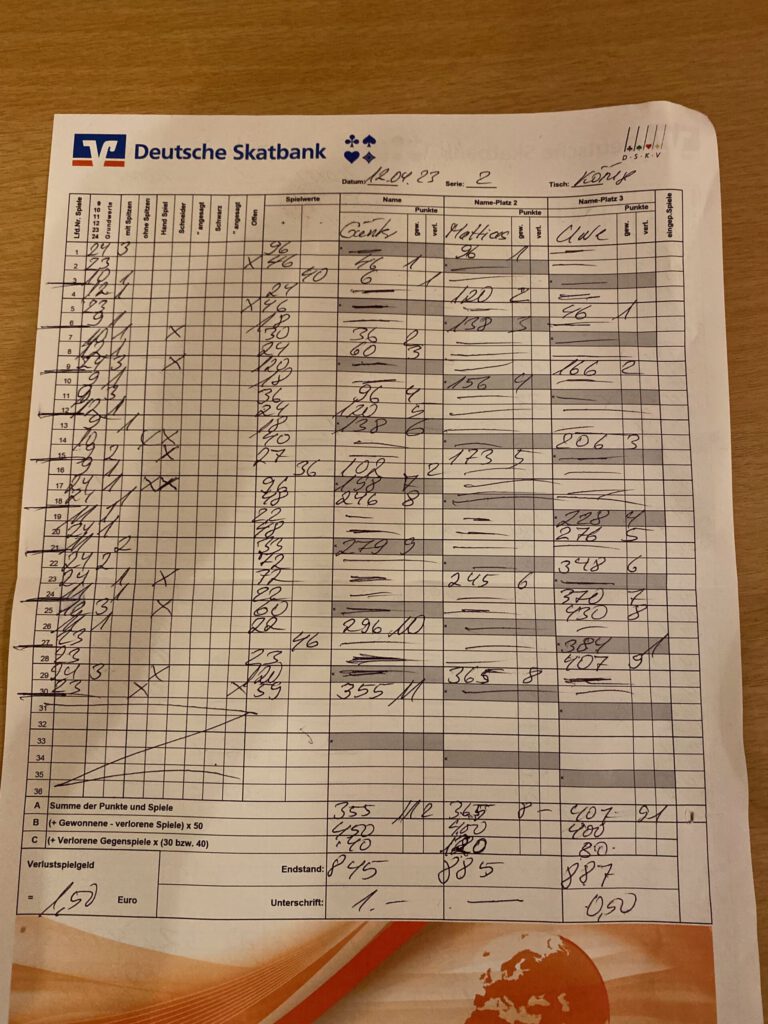 Deutsche Skatbank
D·S·K·V
Datum: 12.04.23 Serie: 2 Tisch: König
Lfd.Nr. Spiele
Grundwerte
mit Spitzen
ohne Spitzen
Hand Spiel
Schneider
" angesagt
Schwarz
" angesagt
Offen
Spielwerte
+ -
Name Name-Platz 2 Name-Platz 3
Punkte
gew. verl.
eingep.Spiele
Mattias Uwe
1 24 3 96 96 1
2 23 X 46 46 1
3 10 1 40 6 1
4 12 1 24 120 2
5 23 X 46 46 1
6 9 1 18 138 3
7 10 1 X 30 36 2
8 24 60 3
9 24 3 X 120 166 2
10 9 1 18 156 4
11 9 3 36 96 4
12 12 1 24 120 5
13 9 1 18 138 6
14 10 X 40 206 3
15 9 2 X 27 173 5
16 9 1 36 102 2
17 24 1 X X 96 198 7
18 24 48 246 8
19 11 1 22 228 4
20 24 1 48 276 5
21 11 2 33 279 9
22 24 2 72 348 6
23 24 1 X 72 245 6
24 11 1 22 370 7
25 3 X 60 430 8
26 11 1 22 296 10
27 23 46 384 1
28 23 23 407 9
29 24 3 X 120 365 8
30 23 X X 59 355 11
31
32
33
34
35
36
A Summe der Punkte und Spiele 355 11 2 365 8 - 407 9 1
B (+ Gewonnene - verlorene Spiele) x 50 450 400 400
C (+ Verlorene Gegenspiele x (30 bzw. 40) 40 120 80
Verlustspielgeld Endstand: 845 885 887
= 1,50 Euro Unterschrift: 1.- — 0,50